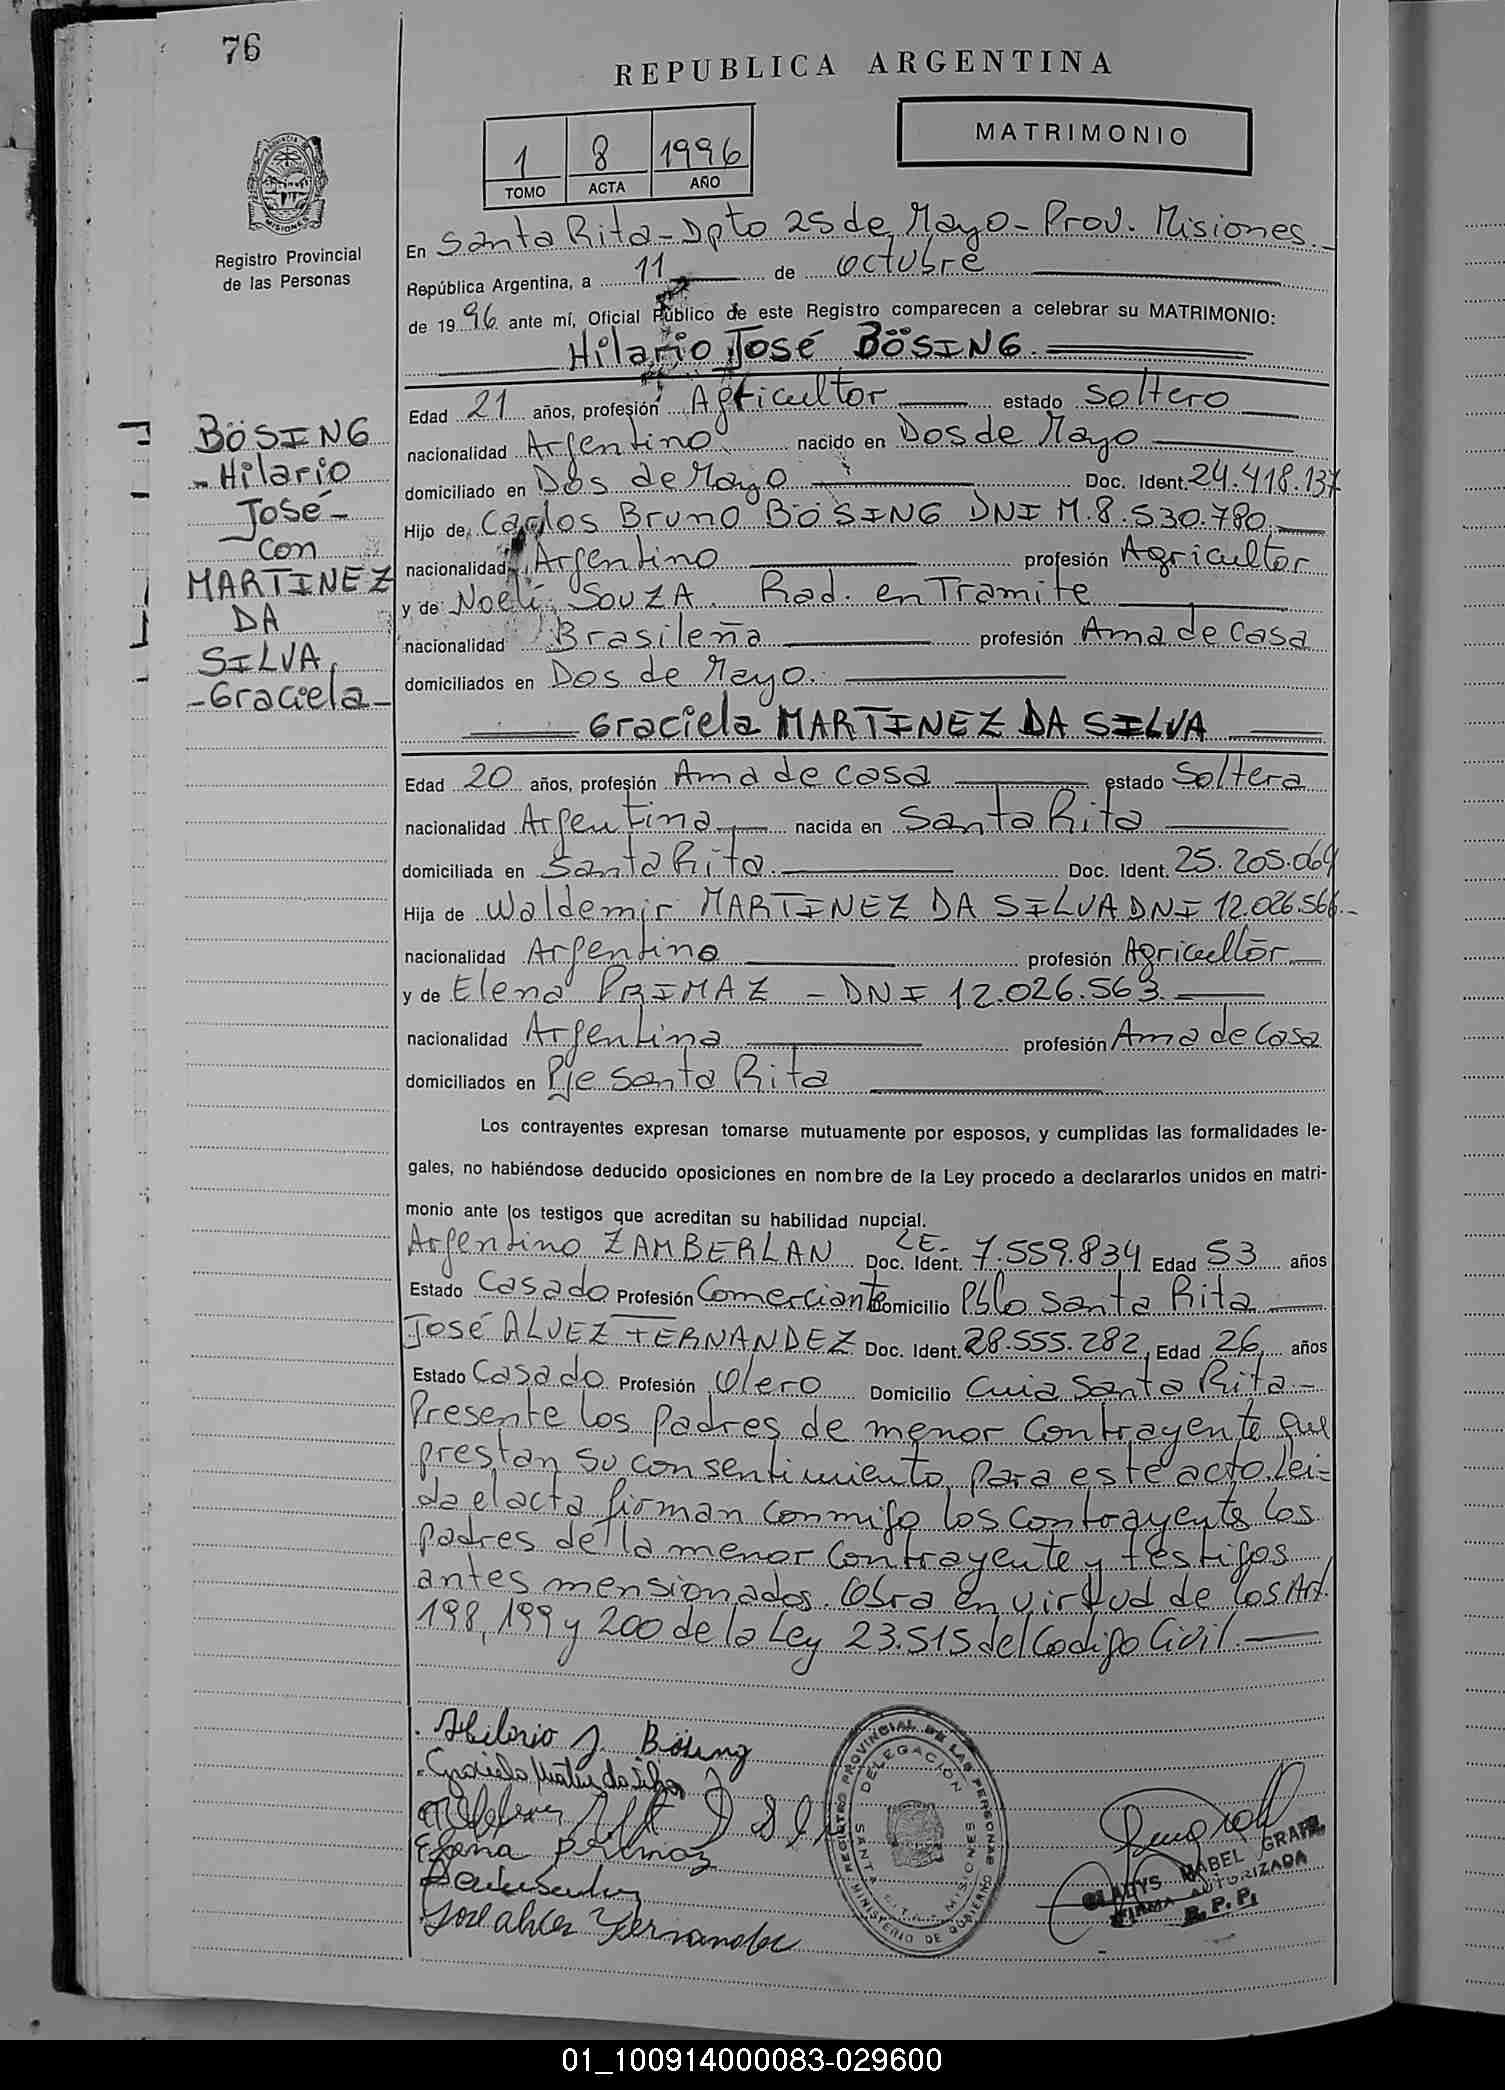 76
REPUBLICA ARGENTINA
MATRIMONIO
1 8 1996
TOMO ACTA AÑO
Registro Provincial
de las Personas
En Santa Rita - Dpto 25 de Mayo - Prov. Misiones.
República Argentina, a 11 de octubre
de 1996 ante mí, Oficial Público de este Registro comparecen a celebrar su MATRIMONIO:
Hilario José BÖSING
Edad 21 años, profesión Agricultor estado Soltero
nacionalidad Argentino nacido en Dos de Mayo
domiciliado en Dos de Mayo Doc. Ident. 24.418.137
Hijo de Carlos Bruno BÖSING DNI M.8.530.780
nacionalidad Argentino profesión Agricultor
y de Noelí SOUZA. Rad. en Tramite
nacionalidad Brasileña profesión Ama de casa
domiciliados en Dos de Mayo.
BÖSING
- Hilario
José -
con
MARTINEZ
DA
SILVA
- Graciela -
Graciela MARTINEZ DA SILVA
Edad 20 años, profesión Ama de casa estado Soltera
nacionalidad Argentina nacida en Santa Rita
domiciliada en Santa Rita. Doc. Ident. 25.205.069
Hija de Waldemir MARTINEZ DA SILVA DNI 12.026.566
nacionalidad Argentino profesión Agricultor
y de Elena PRIMAZ - DNI 12.026.563
nacionalidad Argentina profesión Ama de Casa
domiciliados en Pje Santa Rita
Los contrayentes expresan tomarse mutuamente por esposos, y cumplidas las formalidades le-
gales, no habiéndose deducido oposiciones en nombre de la Ley procedo a declararlos unidos en matri-
monio ante los testigos que acreditan su habilidad nupcial.
Argentino ZAMBERLAN Doc. Ident. L.E. 7.559.834 Edad 53 años
Estado Casado Profesión Comerciante Domicilio Pblo Santa Rita
José ALVEZ FERNANDEZ Doc. Ident. 28.555.282 Edad 26 años
Estado Casado Profesión Olero Domicilio Cnia Santa Rita -
Presente los padres de menor contrayente que
prestan su consentimiento para este acto. Lei=
da el acta firman conmigo los contrayentes los
padres de la menor contrayente y testigos
antes mensionados. Obra en virtud de los Art.
198, 199 y 200 de la Ley 23.515 del Codigo Civil.
Hilario J. Bösing
Elena Primaz
José alves Fernandez
REGISTRO PROVINCIAL DE LAS PERSONAS
MINISTERIO DE GOBIERNO
DELEGACION
SANTA RITA - MISIONES
GLADYS MABEL
FIRMA AUTORIZADA
R. P. P.
01_100914000083-029600